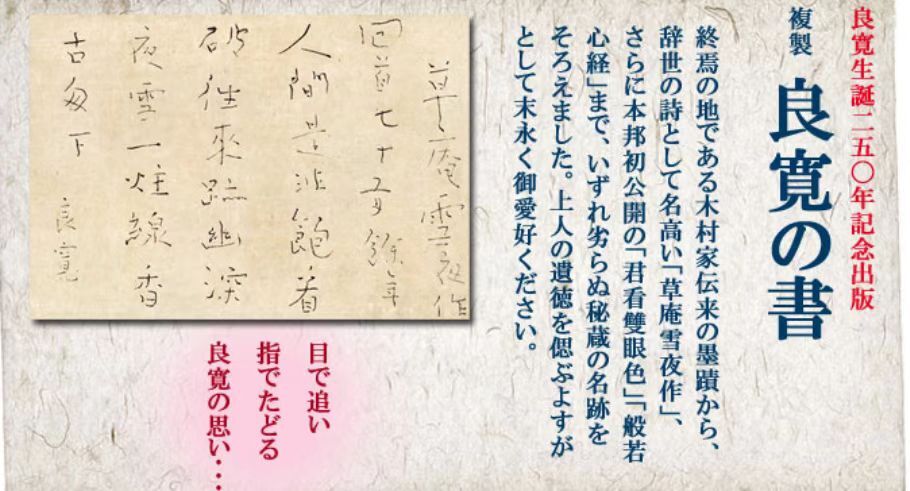 良寛生誕二五〇年記念出版
複製 良寛の書
終焉の地である木村家伝来の墨蹟から、
辞世の詩として名高い「草庵雪夜作」、
さらに本邦初公開の「君看雙眼色」「般若
心経」まで、いずれ劣らぬ秘蔵の名跡を
そろえました。上人の遺徳を偲ぶよすが
として末永く御愛好ください。
草庵雪夜作
回首七十有餘年
人間是非飽看
破往來跡幽深
夜雪一炷線香
古匆下 良寛
目で追い
指でたどる
良寛の思い・・・